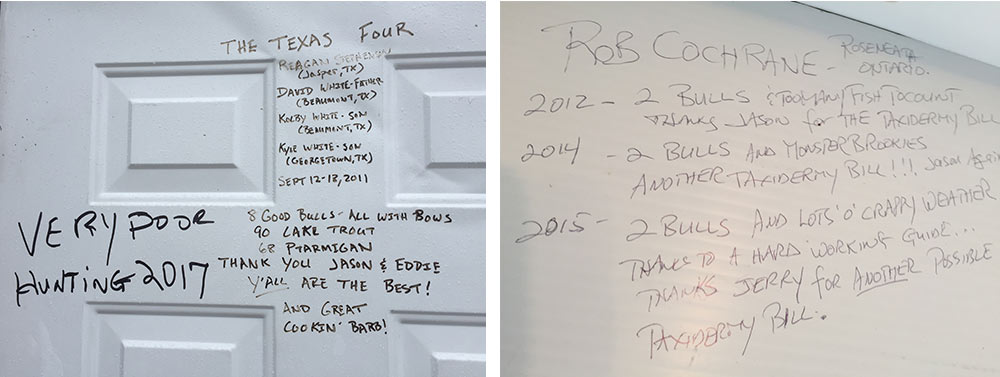 THE TEXAS FOUR
REAGAN STEPHENSON
(Jasper, TX)
DAVID WHITE-FATHER
(BEAUMONT, TX)
KOLBY WHITE-SON
(BEAUMONT, TX)
KYLE WHITE-SON
(GEORGETOWN, TX)
SEPT 12-18, 2011
8 GOOD BULLS-ALL WITH BOWS
90 LAKE TROUT
68 PTARMIGAN
THANK YOU JASON & EDDIE
Y'ALL ARE THE BEST!
AND GREAT
COOKIN' BARB!
VERY POOR
HUNTING 2017
ROB COCHRANE - ROSENEATH
ONTARIO.
2012 - 2 BULLS & TOO MANY FISH TO COUNT
THANKS JASON for THE TAXIDERMY BILL
2014 - 2 BULLS AND MONSTER BROOKIES
ANOTHER TAXIDERMY BILL!!! Jason Again
2015 - 2 BULLS AND LOTS 'O' CRAPPY WEATHER
THANKS TO A HARD WORKING GUIDE...
THANKS JERRY for ANOTHER POSSIBLE
TAXIDERMY BILL.